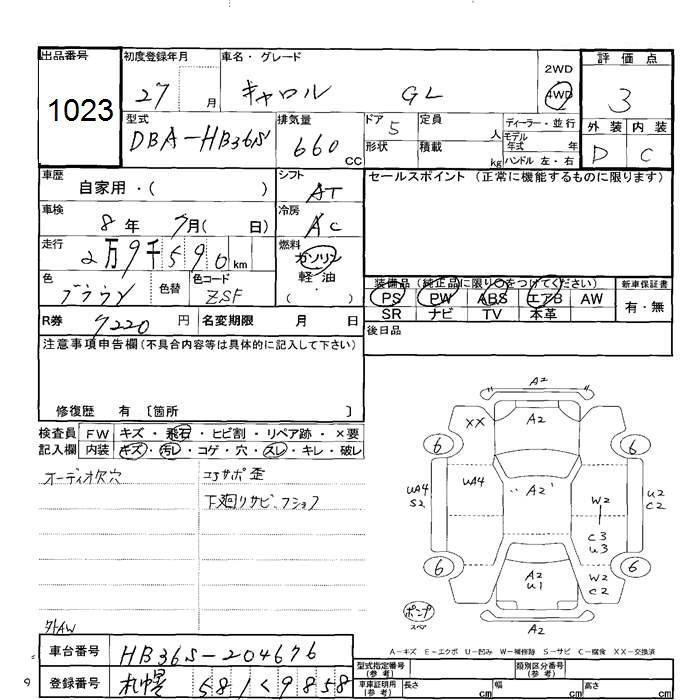 出品番号 初度登録年月 車名・グレード 2WD 評価点
1023 27 月 キャロル GL 4WD 3
型式 排気量 ドア 5 定員 人 ディーラー・並行 外装 内装
DBA-HB36S 660 CC 形状 積載 kg モデル年式 年 D C
ハンドル 左・右
車歴 シフト セールスポイント (正常に機能するものに限ります)
自家用・( ) AT
車検 冷房
8年 7月( 日) AC
走行 燃料
2万9千590km ガソリン
色 色替 色コード 軽・油 装備品 (純正品に限り○をつけてください) 新車保証書
ブラウン ZSF ( ) PS PW ABS エアB AW 有・無
SR ナビ TV 本革
R券 7220円 名変期限 月 日 後日品
注意事項申告欄(不具合内容等は具体的に記入して下さい)
修復歴 有 〔箇所 〕
検査員 FW キズ・飛石・ヒビ割・リペア跡・×要
記入欄 内装 キズ・汚レ・コゲ・穴・スレ・キレ・破レ
オーディオ欠穴 コアサポ歪
下廻りサビ、フショク
外AW
A2
XX A2
6 6
UA4 UA4 "A2" W2 U2
S2 C2
C3
U3
6 A2 W2 6
U1 C2
ポンプ
スペア
A2
A-キズ E-エクボ U-凹み W-補修跡 S-サビ C-腐食 XX-交換済
車台番号 HB36S-204676 型式指定番号 (参考) 類別区分番号 (参考)
9 登録番号 札幌 581く9858 車庫証明用 (参考) 長さ cm 幅 cm 高さ cm